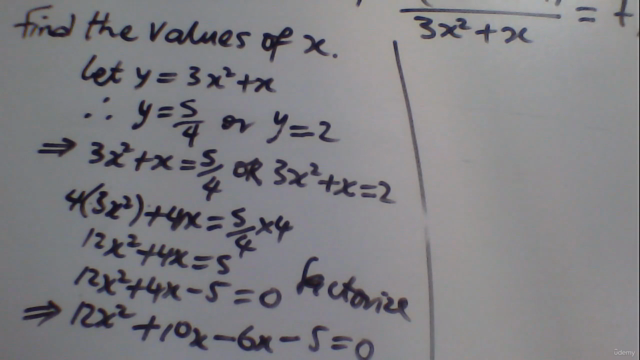 Find the values of x.
let y = 3x² + x
∴ y = 5/4 or y = 2
⇒ 3x² + x = 5/4 or 3x² + x = 2
4(3x²) + 4x = 5/4 × 4
12x² + 4x = 5
12x² + 4x - 5 = 0 factorize
⇒ 12x² + 10x - 6x - 5 = 0
3x² + x =
Udemy